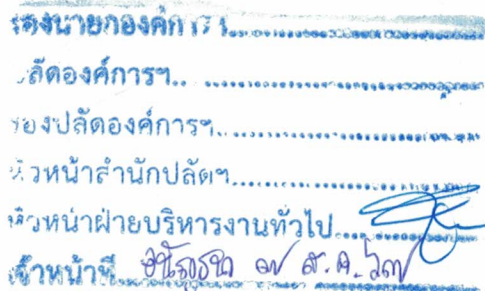 รองนายกองค์การฯ
ปลัดองค์การฯ
รองปลัดองค์การฯ
หัวหน้าสำนักปลัดฯ
หัวหน้าฝ่ายบริหารงานทั่วไป
เจ้าหน้าที่ ส.ค.